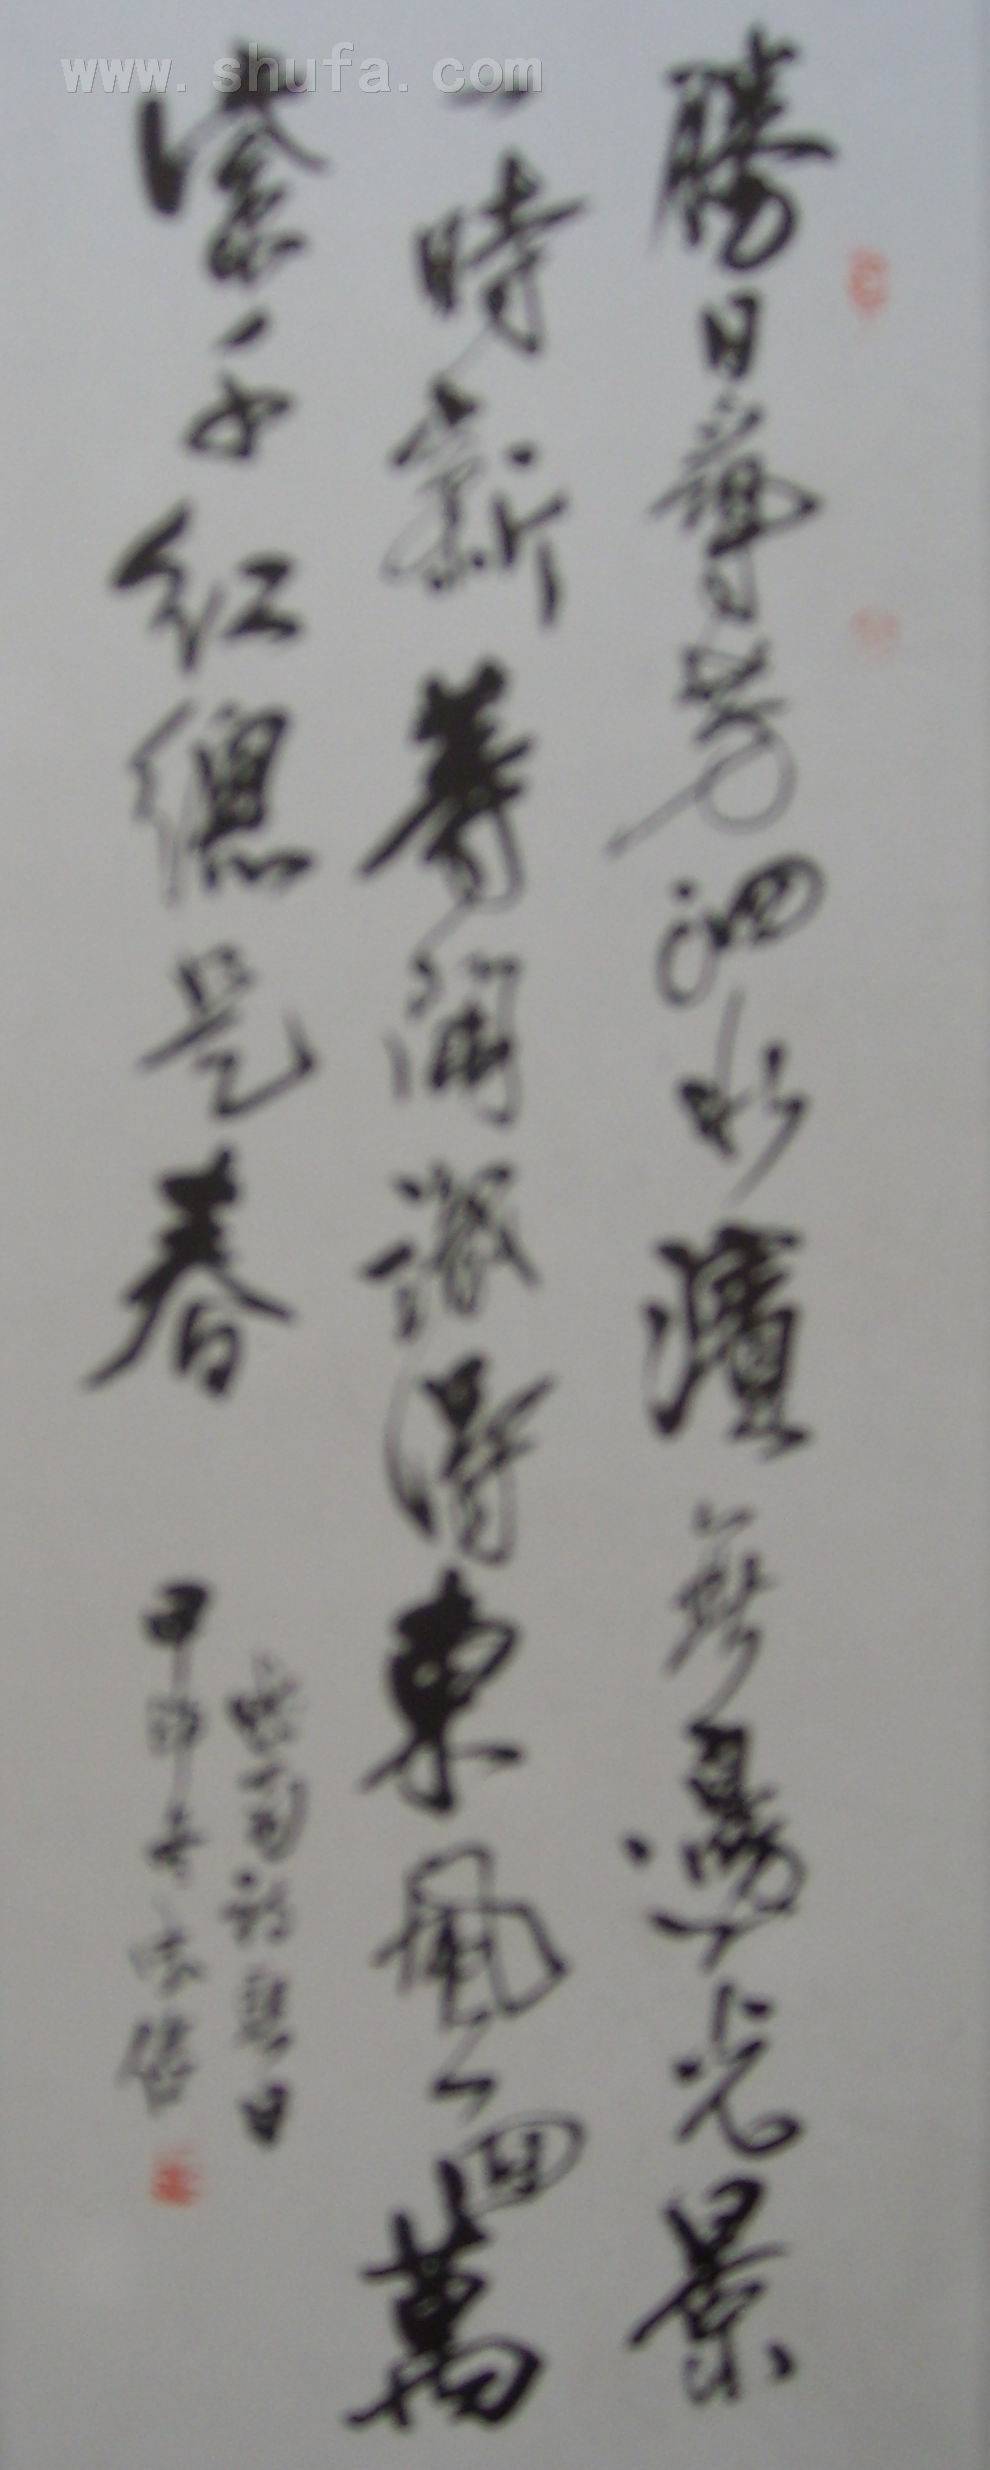 www.shufa.com
勝日尋芳泗水濱無邊光景
一時新等閒識得東風面萬
紫千紅總是春
朱熹詩春日
甲申